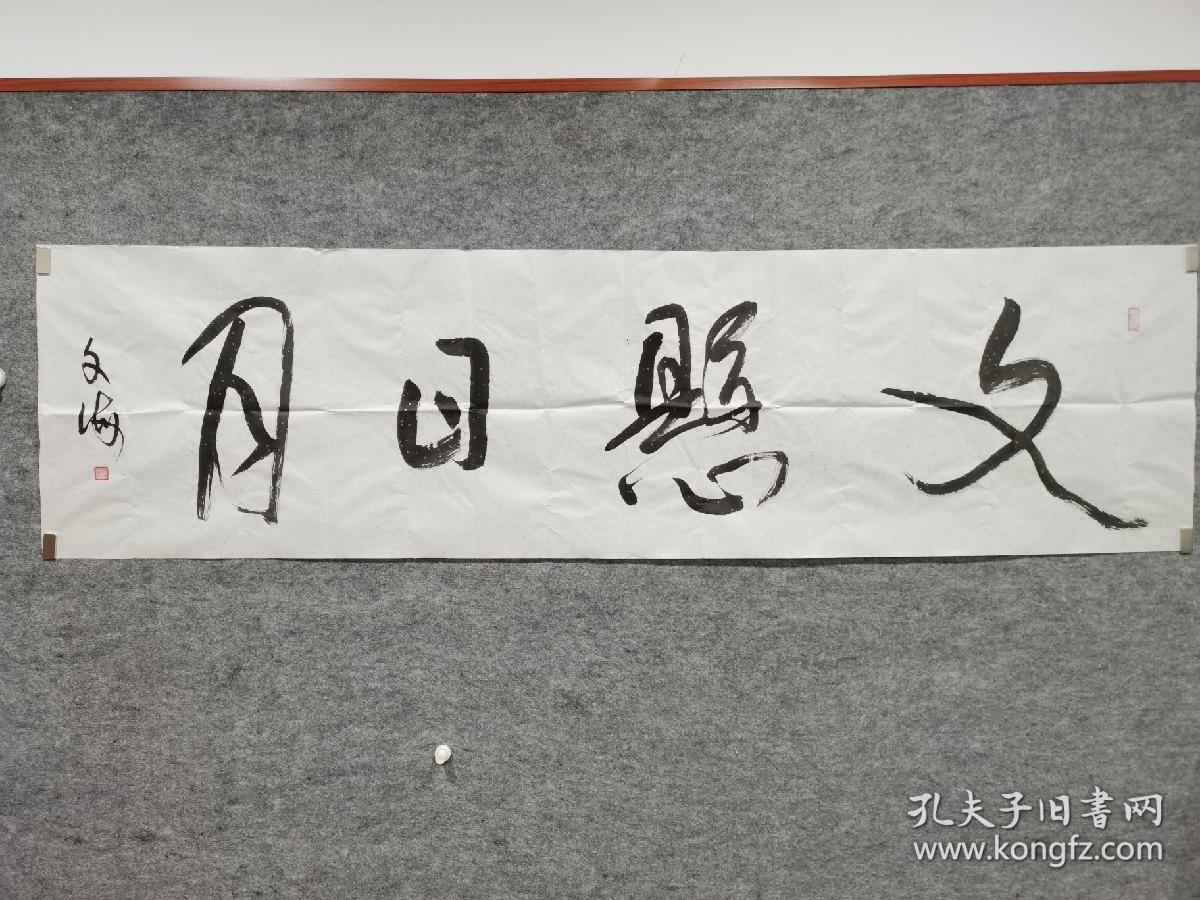 文懸日月
文海
孔夫子旧書网
www.kongfz.com